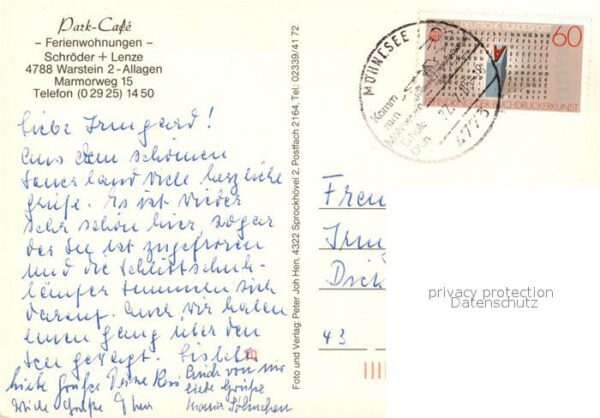 Park-Café
- Ferienwohnungen -
Schröder + Lenze
4788 Warstein 2 - Allagen
Marmorweg 15
Telefon (0 29 25) 14 50
Liebe Irmgard!
Aus dem schönen
Sauerland viele herzliche
Grüße. Es ist wieder
sehr schön hier sogar
der See ist zugefroren
und die Schlittschuh-
läufer tummeln sich
darauf. Auch wir haben
einen Gang über den
See gewagt. Bis bald
viele Grüße Deine Resi
Auch von mir
viele Grüße
Viele Grüße
Maria
Foto und Verlag: Peter Joh Hen. 4322 Sprockhövel 2, Postfach 2164, Tel: 02339/41 72
MÖHNESEE
Komm
zum
4773
DEUTSCHE BUNDESPOST
60
BUCHDRUCKERKUNST
43
privacy protection
Datenschutz